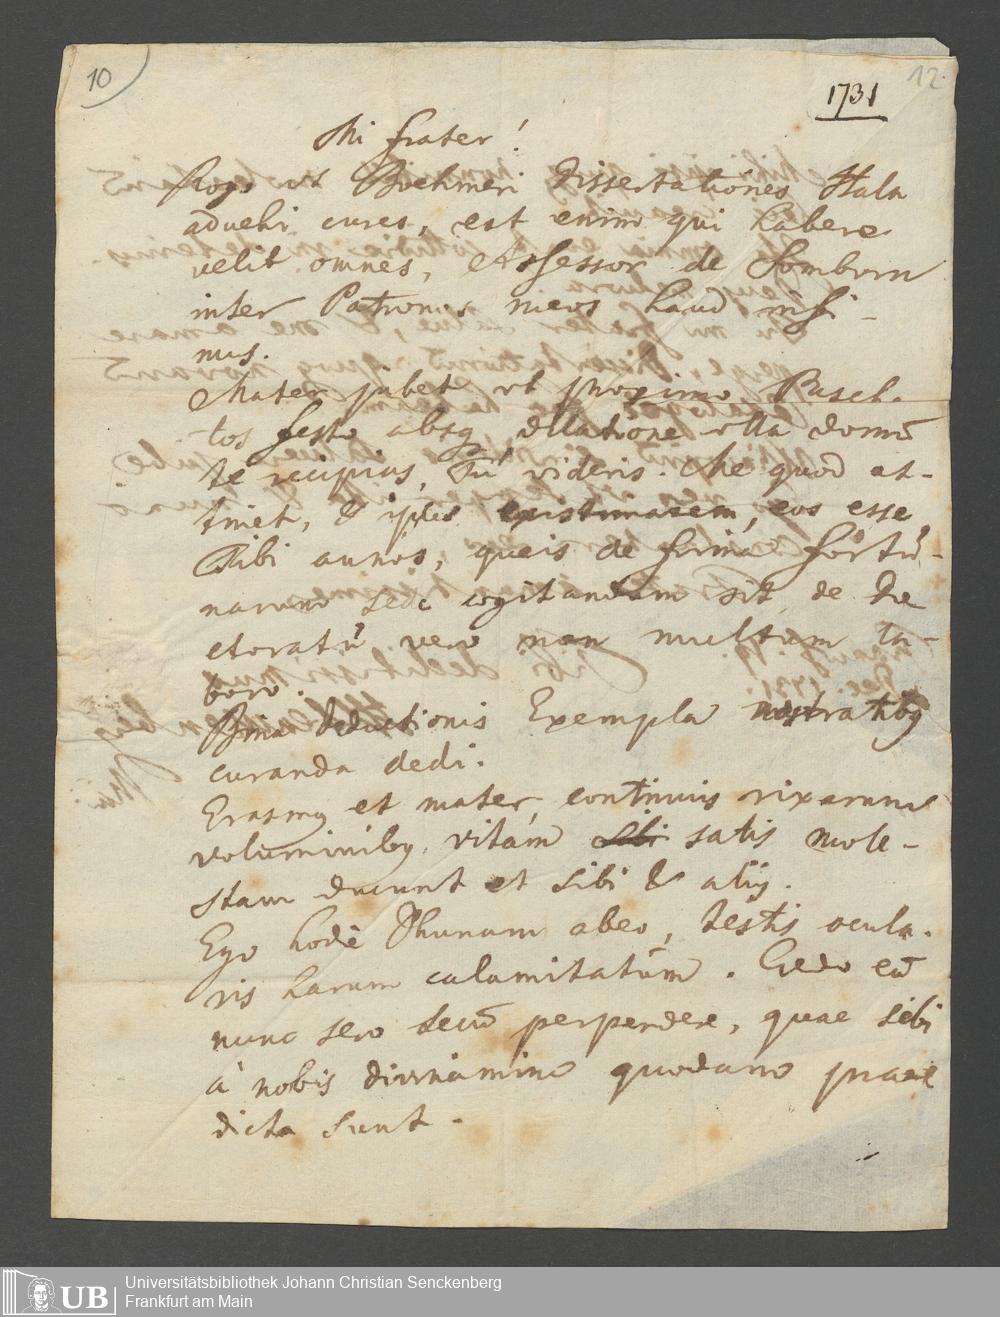 10
12
1731
Mi frater!
Rogo ut Boehmeri Dissertationes Hala
advehi cures, est enim qui habere
velit omnes, Assessor de
inter Patronos meos haud infi-
mus.
Mater jubet ut proximo Pascha-
tos festo absq dilatione ulla domū
te recipias, Tu videris. Me quod at-
tinet, & ipse existimarem, eos esse
Tibi annos, queis de forma fortu-
narum sede cogitandum sit, de Do-
ctoratu vero non multum la-
boro.
Bina deductionis Exempla nostratiby
curanda dedi.
Erasmy et mater continuis rixarum
voluminiby vitam satis mole-
stam ducunt et sibi & aliis.
Ego hodie Dhunam abeo, testis ocula-
ris harum calamitatum. Credo eū
nunc sero secū perpendere, quae sibi
a nobis quodam prae
dicta sunt.
UB
Universitätsbibliothek Johann Christian Senckenberg
Frankfurt am Main